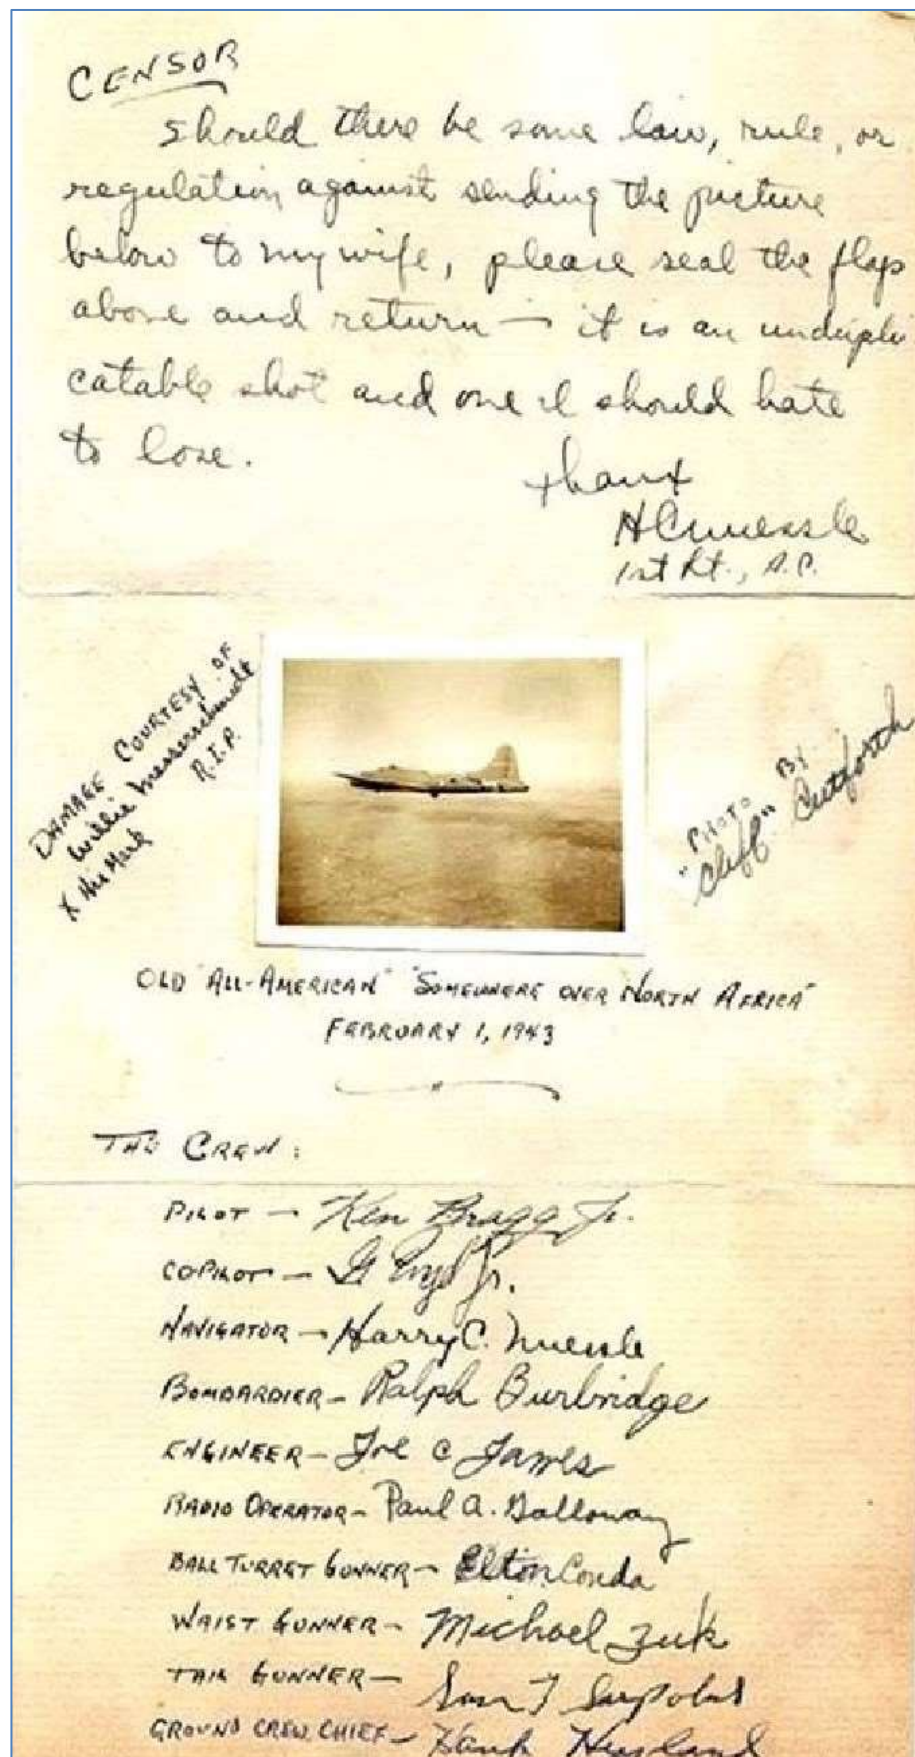 CENSOR
Should there be some law, rule, or
regulation against sending the picture
below to my wife, please seal the flap
above and return — it is an undupli
catable shot and one I should hate
to lose.
thanx
HCNuessle
1st Lt., A.C.
DAMAGE COURTESY OF
Willie Messerschmidt
X His Mark R.I.P.
"PHOTO BY
"Cliff" Cutforth
OLD "ALL-AMERICAN" "SOMEWHERE OVER NORTH AFRICA"
FEBRUARY 1, 1943
THE CREW:
PILOT — Ken Bragg Jr.
COPILOT — Jr.
NAVIGATOR — Harry C. Nuessle
BOMBARDIER — Ralph Burbridge
ENGINEER — Joe C James
RADIO OPERATOR — Paul A. Galloway
BALL TURRET GUNNER — Elton Conda
WAIST GUNNER — Michael Zuk
TAIL GUNNER — Sam T Sarpolus
GROUND CREW CHIEF — Hank Hyland